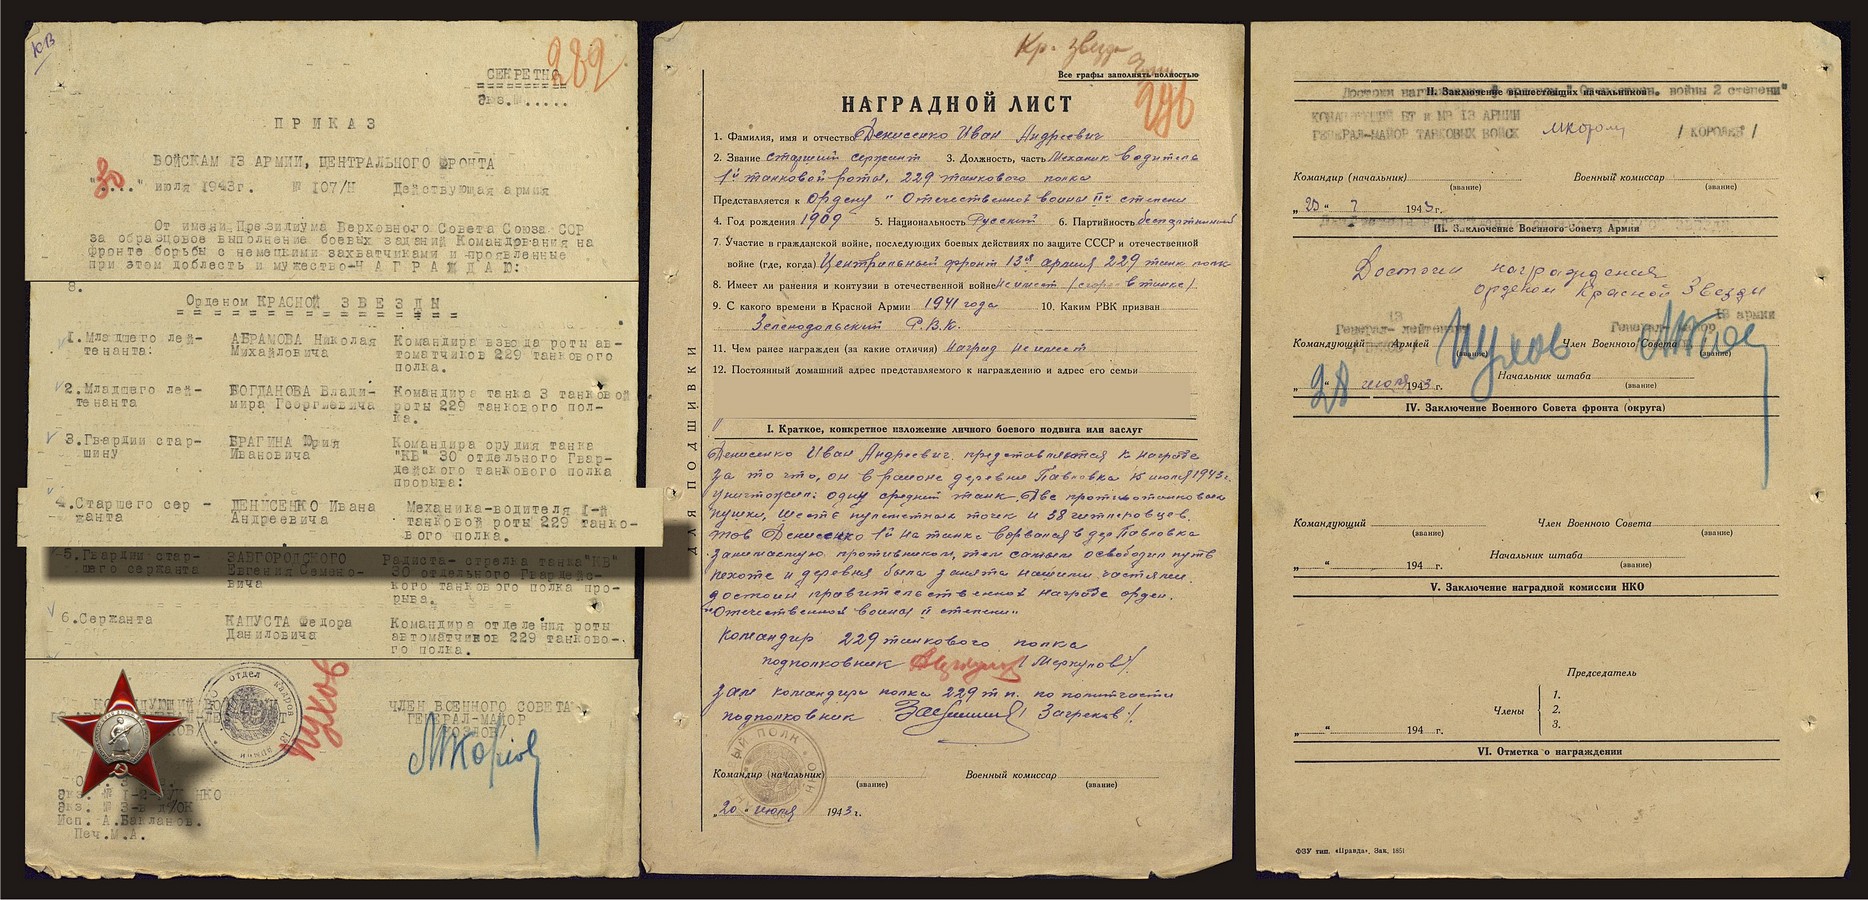 Ю.В
282
СЕКРЕТНО
Экз.№.....
ПРИКАЗ
ВОЙСКАМ 13 АРМИИ, ЦЕНТРАЛЬНОГО ФРОНТА
"30" июля 1943г. № 107/Н Действующая армия
От имени Президиума Верховного Совета Союза ССР
за образцовое выполнение боевых заданий Командования на
фронте борьбы с немецкими захватчиками и проявленные
при этом доблесть и мужество-НАГРАЖДАЮ:
8.
Орденом КРАСНОЙ ЗВЕЗДЫ
1.Младшего лей- АБРАМОВА Николая Командира взвода роты ав-
тенанта: Михайловича томатчиков 229 танкового
полка.
2.Младшего лей- БОГДАНОВА Влади- Командира танка 3 танковой
тенанта мира Георгиевича роты 229 танкового пол-
ка.
3.Гвардии стар- БРАГИНА Юрия Командира орудия танка
шину Ивановича "КВ" 30 отдельного Гвар-
дейского танкового полка
прорыва:
4.Старшего сер - ДЕНИСЕНКО Ивана Механика-водителя 1-й
жанта Андреевича танковой роты 229 танко-
вого полка.
5.Гвардии стар- ЗАВГОРОДСКОГО Радиста- стрелка танка"КВ"
шего сержанта Евгения Семено- 30 отдельного Гвардейс-
вича кого танкового полка про-
рыва.
6.Сержанта КАПУСТА Федора Командира отделения роты
Даниловича автоматчиков 229 танково-
го полка.
ЧЛЕН ВОЕННОГО СОВЕТА
ГЕНЕРАЛ-МАЙОР
/КОЗЛОВ/
Пухов
отдел кадров 13 армии
Исп. А.Бакланов.
Печ.М.А.
Кр. звезда
296
Все графы заполнять полностью
НАГРАДНОЙ ЛИСТ
1. Фамилия, имя и отчество Денисенко Иван Андреевич
2. Звание старший сержант 3. Должность, часть Механик водитель
1й танковой роты, 229 танкового полка
Представляется к Ордену "Отечественной войны IIй степени
4. Год рождения 1909 5. Национальность Русский 6. Партийность беспартийный
7. Участие в гражданской войне, последующих боевых действиях по защите СССР и отечественной
войне (где, когда) Центральный фронт 13я армия 229 танк полк
8. Имеет ли ранения и контузии в отечественной войне не имеет /сгорел в танке/
9. С какого времени в Красной Армии 1941 года 10. Каким РВК призван
Зеленодольский Р.В.К.
11. Чем ранее награжден (за какие отличия) Наград не имеет
12. Постоянный домашний адрес представляемого к награждению и адрес его семьи
ДЛЯ ПОДШИВКИ
I. Краткое, конкретное изложение личного боевого подвига или заслуг
Денисенко Иван Андреевич, представляется к награде
за то что, он в районе деревне Павловка 15 июля 1943г.
уничтожил: одну средний танк, две противотанковых
пушки, шесть пулеметных точек и 38 гитлеровцев.
тов Денисенко 1й на танке ворвался в дер Павловка
занимаемую противником, тем самым освободил путь
пехоте и деревня была занята нашими частями.
достоин правительственной награде орден.
"Отечественной войны II степени"
Командир 229 танкового полка
подполковник /Меркулов/
Зам командира полка 229 т.п. по политчасти
подполковник /Загреков/.
Командир (начальник) Военный комиссар
(звание) (звание)
"20" июля 1943г.
II. Заключение вышестоящих начальников
Достоин награждения орденом "Отечествен. войны 2 степени"
КОМАНДУЮЩИЙ БТ и МВ 13 АРМИИ
ГЕНЕРАЛ-МАЙОР ТАНКОВЫХ ВОЙСК /КОРОЛЕВ/
Командир (начальник) Военный комиссар
(звание) (звание)
"23" 7 1943г.
III. Заключение Военного Совета Армии
Достоин награждения
орденом Красной Звезды
13 13 армии
Генерал- лейтенант Генерал- майор
Командующий Армией Пухов Член Военного Совета
(звание) (звание)
Начальник штаба
(звание)
"28" июля 1943г.
IV. Заключение Военного Совета фронта (округа)
Командующий Член Военного Совета
(звание) (звание)
Начальник штаба
(звание)
"  " 194 г.
V. Заключение наградной комиссии НКО
Председатель
Члены
1.
2.
3.
"  " 194 г.
VI. Отметка о награждении
ФЗУ тип. «Правда», Зак. 1851